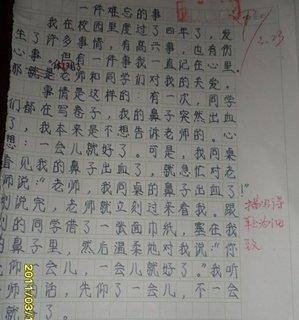 一件难忘的事
我在校园里度过了四年了，发
生了许多事情，有高兴事，也有伤
心事，但有一件我一直记在心里，
都就是老师和同学们对我的关爱。
事情是这样的：有一次，同学
们都在写卷子，我的鼻子突然出血
了，我本来是不想告诉老师的。心
想：一会儿就好了。可是，我同桌
看见我的鼻子出血了，就急忙对老
师说：“老师，我同桌的鼻子出血了！”
刚说完，老师就立刻过来看我。跟
别的同学借了一张面巾纸，塞在我
的鼻子里，然后温柔地对我说：“你
先仰一会儿，一会儿就好了。”我听
师话，先仰了一会儿，不一会
就了。
描写得
较为细
致
3.23
2011/03/